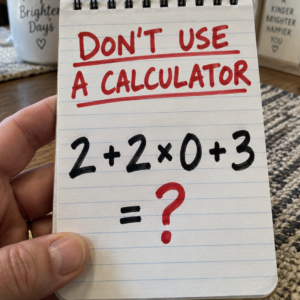 Brighter
Days
KINDER
BRIGHTER
HAPPIER
YOU
DON'T USE
A CALCULATOR
2+2×0+3
=?